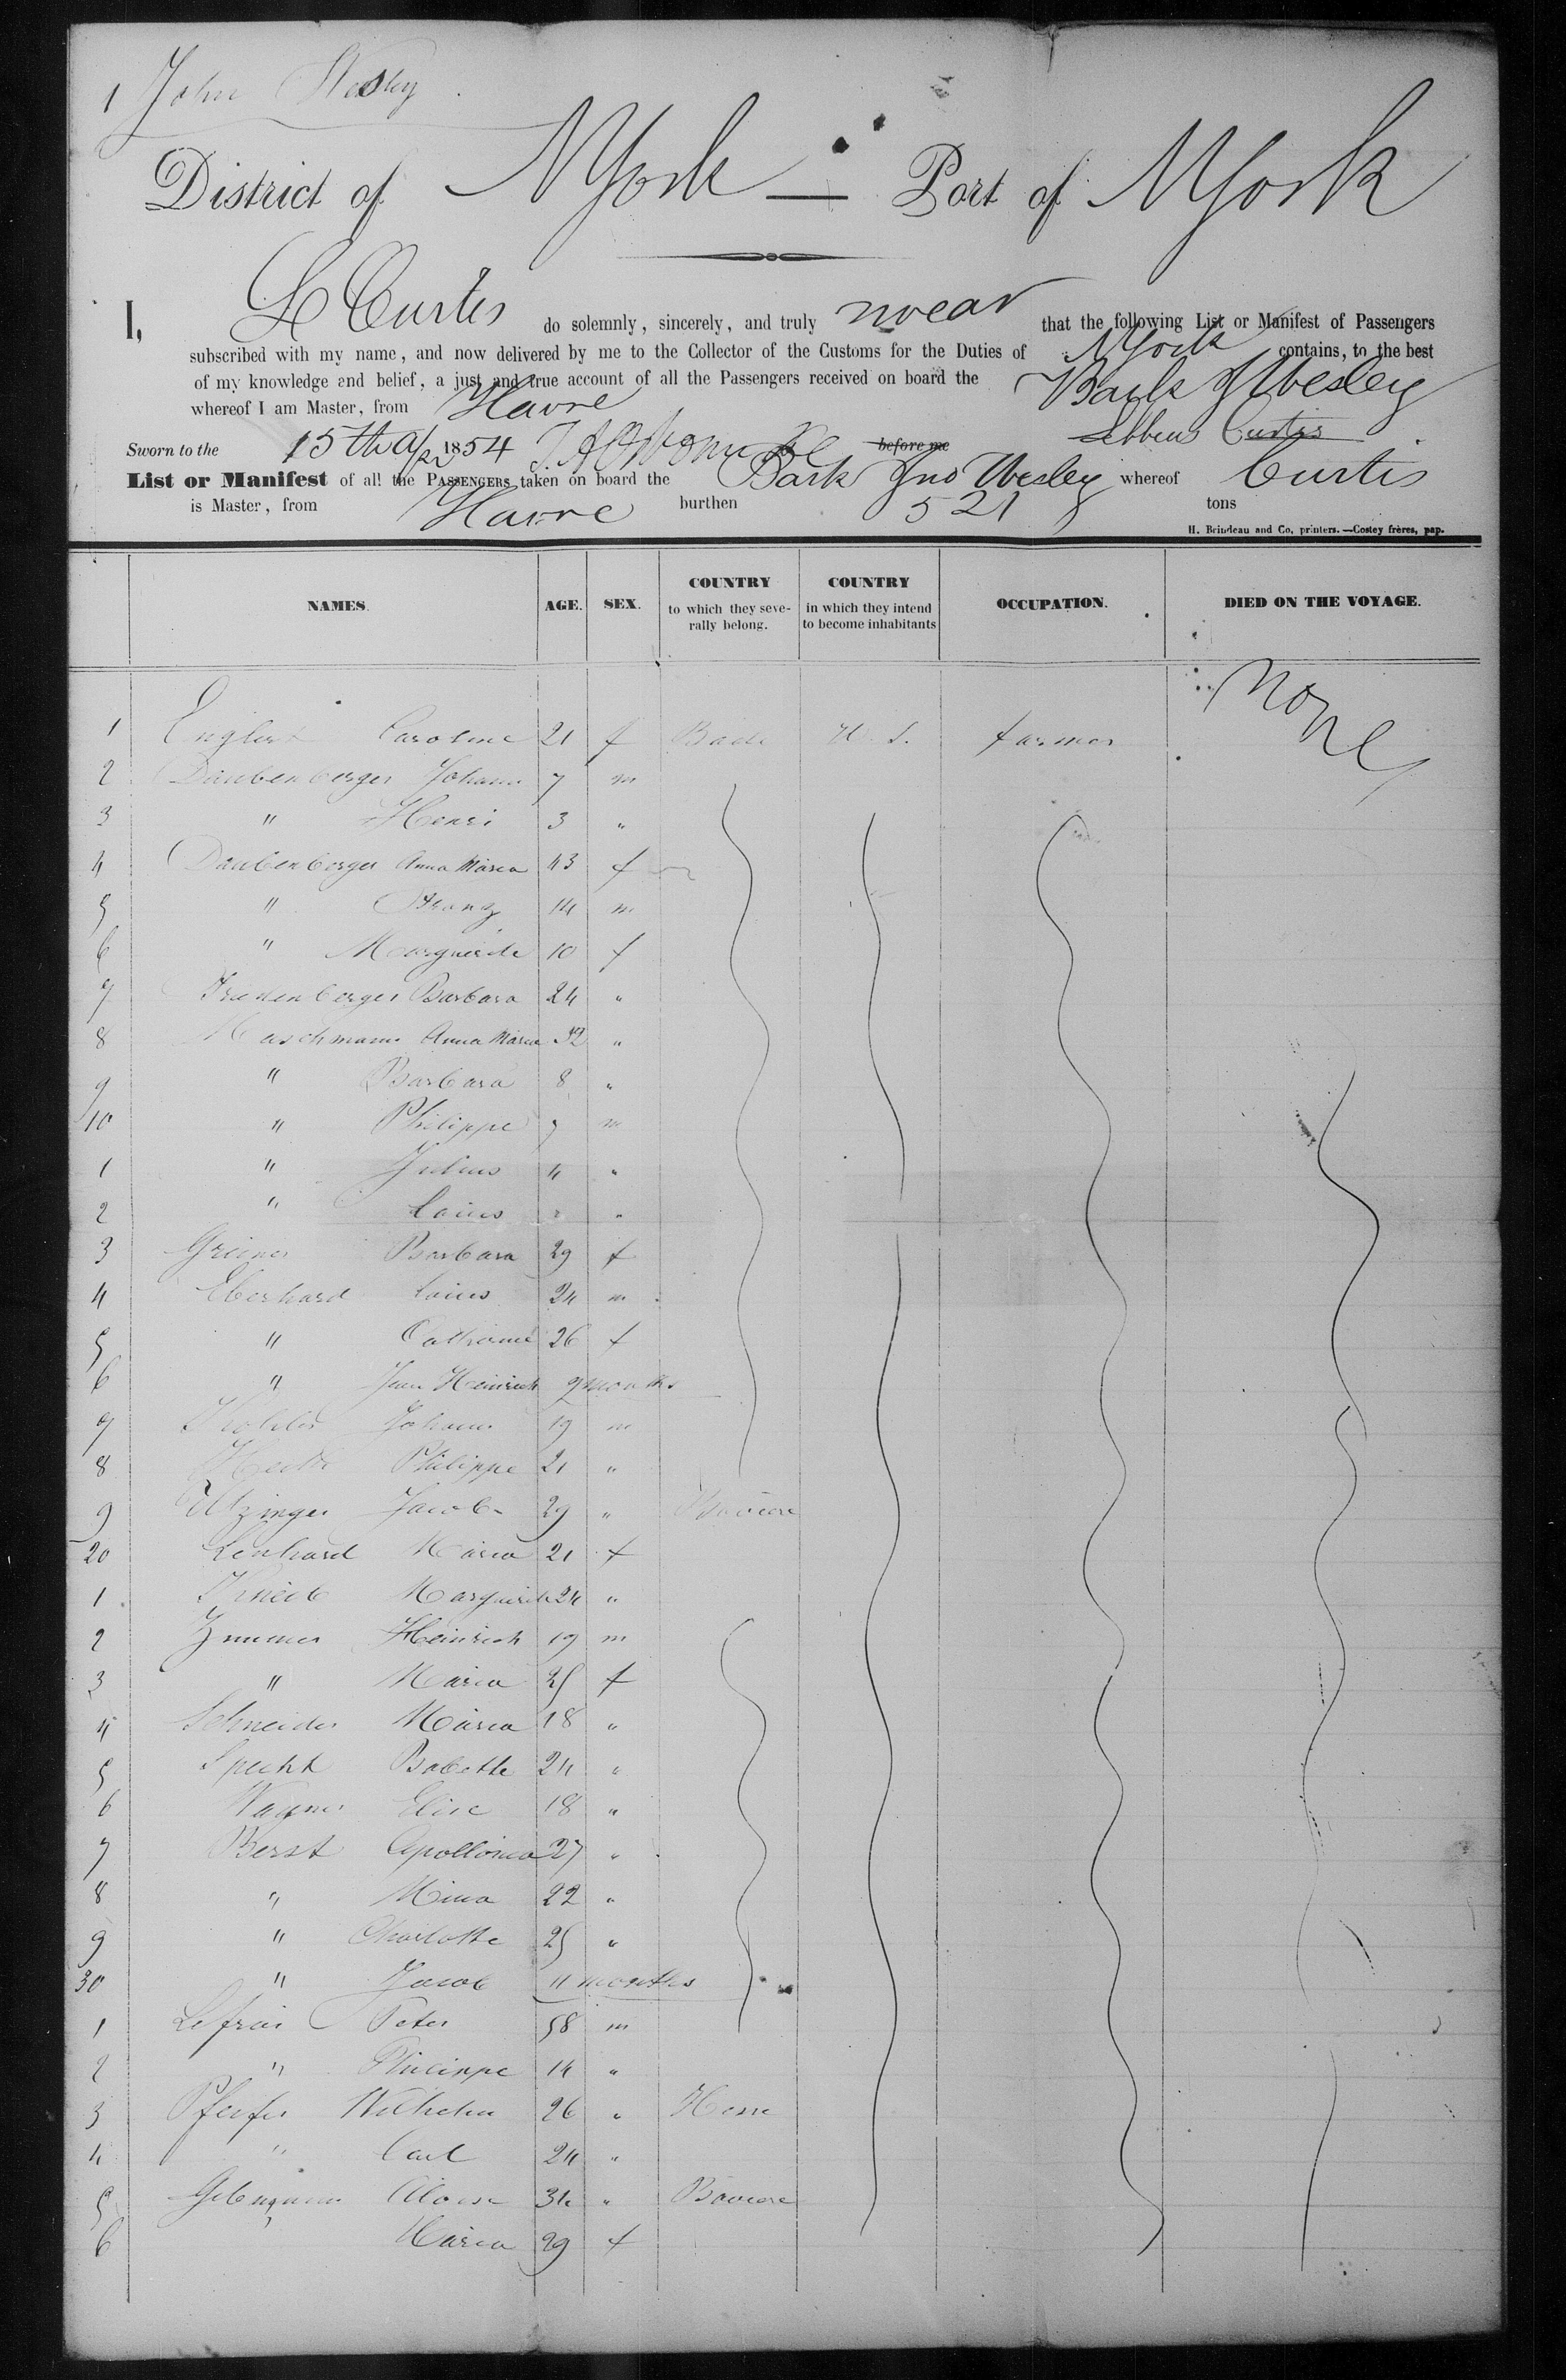 1 John Wesley
District of NYork — Port of NYork
I, L Curtis do solemnly, sincerely, and truly swear that the following List or Manifest of Passengers
subscribed with my name, and now delivered by me to the Collector of the Customs for the Duties of NYork contains, to the best
of my knowledge and belief, a just and true account of all the Passengers received on board the Bark J Wesley
whereof I am Master, from Havre
Sworn to the 15th Ap 1854 before me Lebbeus Curtis
List or Manifest of all the PASSENGERS taken on board the Bark Jno Wesley whereof Curtis
is Master, from Havre burthen 521 tons
H. Brindeau and Co, printers.—Costey frères, pap.
NAMES. AGE. SEX. COUNTRY to which they seve-rally belong. COUNTRY in which they intend to become inhabitants OCCUPATION. DIED ON THE VOYAGE.
None
1 Englert Caroline 21 f Bade U.S. farmer
2 Daubenberger Johann 7 m
3 " Henri 3 "
4 Daubenberger Anna Maria 43 f
5 " Franz 14 m
6 " Marguerite 10 f
7 Friedenberger Barbara 24 "
8 Maschmann Anna Maria 32 "
9 " Barbara 8 "
10 " Philippe 7 m
1 " Julius 4 "
2 " Louis "
3 Greiner Barbara 29 f
4 Eberhard Louis 24 m
5 " Catharine 26 f
6 " Jean Heinrich 9 months
7 Johann 19 m
8 Philippe 21 "
9 Utzinger Jacob 29 " Baviere
20 Lenhard Maria 21 f
1 Marguerite 24 "
2 Zimmer Heinrich 19 m
3 " Maria 25 f
4 Schneider Maria 18 "
5 Specht Babette 24 "
6 Wagner Elise 18 "
7 Berst Apollonia 27 "
8 " Mina 22 "
9 " Charlotte 25 "
30 " Jacob 11 months
1 Peter 58 m
2 " Philippe 14 "
3 Pfeifer Wilhelm 26 " Hesse
4 " Carl 24 "
5 Aloise 34 " Baviere
6 " Maria 29 f